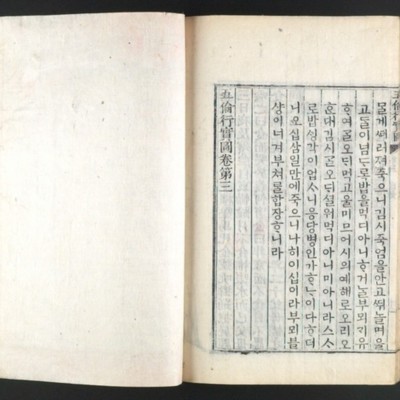 믈게 ᄲᅡ려 져 죽으니 김시 죽엄을 안고 ᄲᅧ 놀며 음
고 들이 념도록 밥을 먹디 아니ᄒᆞ거ᄂᆞᆯ 부뫼 기유
ᄒᆞ여 ᄀᆞᆯ오딘 먹고 울미 므어시 의 해로오리오
ᄒᆞᆫ대 김시 ᄀᆞᆯ오딘 셜워 먹디 아니미 아니라 스ᄉᆞ
로 밥 ᄉᆡᆼ각이 업스니 응당 병인가 ᄒᆞᄂᆞ이다 ᄒᆞ더
니 오십 삼일 만에 죽으니 나히 이십이라 부뫼 블
샹이 녀겨 부쳐를 합장ᄒᆞ니라
五倫行實圖卷第三
五倫行實圖